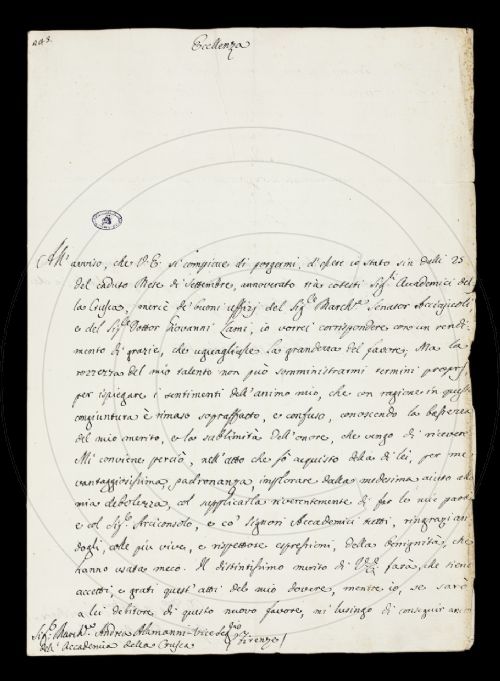 248.
Eccellenza
All' avviso, che V. E. si compiace di porgermi, d'essere io stato sin dalli 25
del caduto Mese di Settembre, annoverato trà cotesti Sig.ri Accademici del
la Crusca, mercè de' buoni uffizj del Sig.re March.e Senator Acciajuoli
e del Sig.re Dottor Giovanni Lami; io vorrei corrispondere con un rendi
mento di grazie, che uguagliasse la grandezza del favore; Ma la
rozzezza del mio talento non può somministrarmi termini proprj
per ispiegare i sentimenti dell'animo mio, che con ragione in questa
congiuntura è rimaso sopraffatto, e confuso, conoscendo la bassezza
del mio merito, e la sublimità dell'onore, che vengo di ricevere
Mi conviene perciò, nell'atto che fò acquisto della di lei, per me
vantaggiosissima, padronanza, implorare dalla medesima aiuto alla
mia debolezza, col supplicarla riverentemente di far le mie parti
e col Sig.re Arciconsolo, e co' Signori Accademici tutti, ringrazian
dogli, colle più vive, e rispettose espressioni, della benignità, che
hanno usata meco. Il distintissimo merito di V. E. farà, che siena
accetti, e grati quest' atti del mio dovere, mentre io, se sarò
a lei debitore di questo nuovo favore, mi lusingo di conseguir anco
Sig.re March.e Andrea Alamanni Vice Seg.rio
dell' Accademia della Crusca Firenze